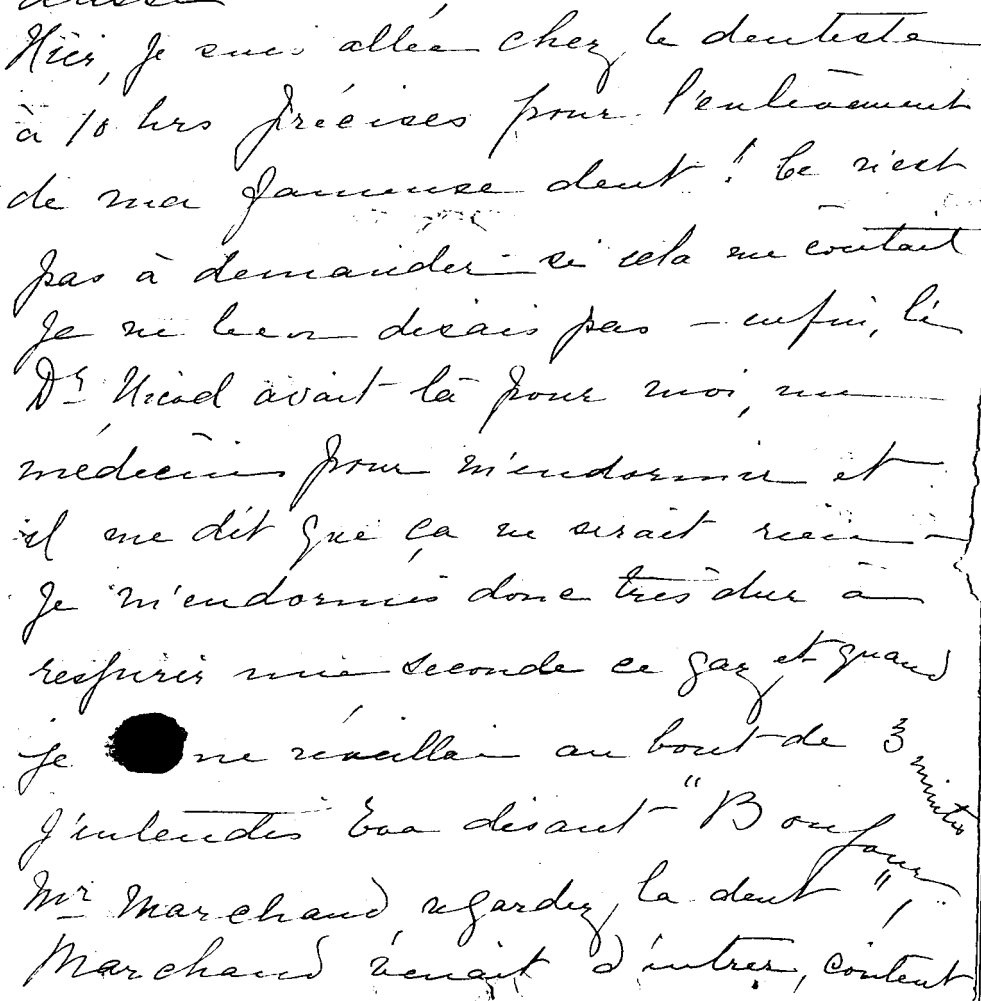 Hier, je suis allée chez le dentiste
à 10 hrs précises pour l'enlèvement
de ma fameuse dent ! Ce n'est
pas à demander si cela me coûtait
Je ne leur disais pas – enfin, le
Dr Nicod avait là pour moi, un
médecin pour m'endormir et
il me dit que ça ne serait rien –
Je m'endormis donc très dur à
respirer une seconde ce gaz, et quand
je me réveillai au bout de 3 minutes
J'entendis Eva disant "Bonjour
Mr Marchand, regardez, la dent",
Marchand venait d'entrer, content